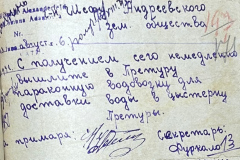 К Шефу Андреевского
Зем. общества
август 6
С получением сего немедленно
вышлите в Претуру
пароконную водовозку для
доставки воды в цистерну
Претуры.
примара:
Секретарь